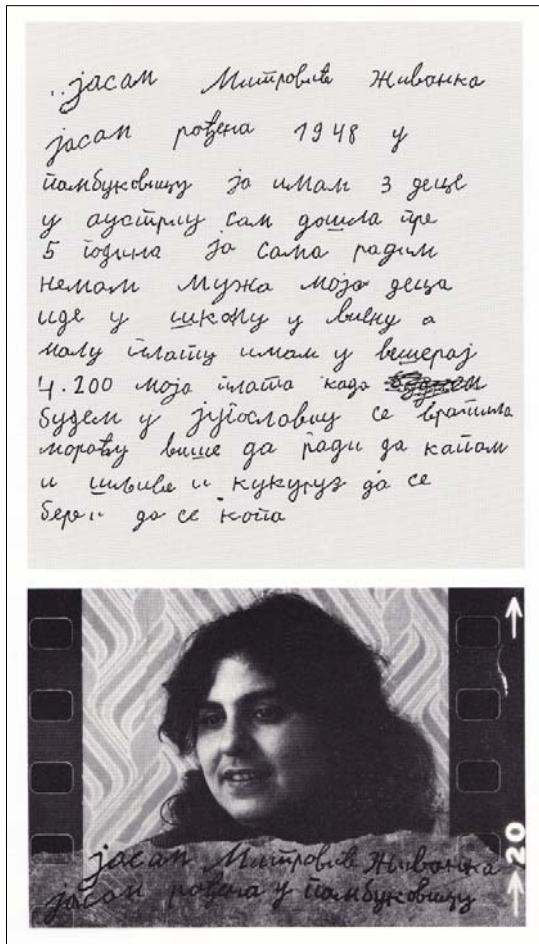 ..јасам Митровић Живанка
јасам рођена 1948 у
памбуковицу ја имам 3 деце
у аустрију сам дошла пре
5 година ја сама радим
немам мужа моја деца
иде у школу у виену а
малу плату имам у вешерај
4.200 моја плата када
будем у југословију се вратила
мораћу више да ради да капам
и шљиве и кукуруз да се
бере и да се копа
јасам Митровић Живанка
јасам рођена у памбуковицу
20